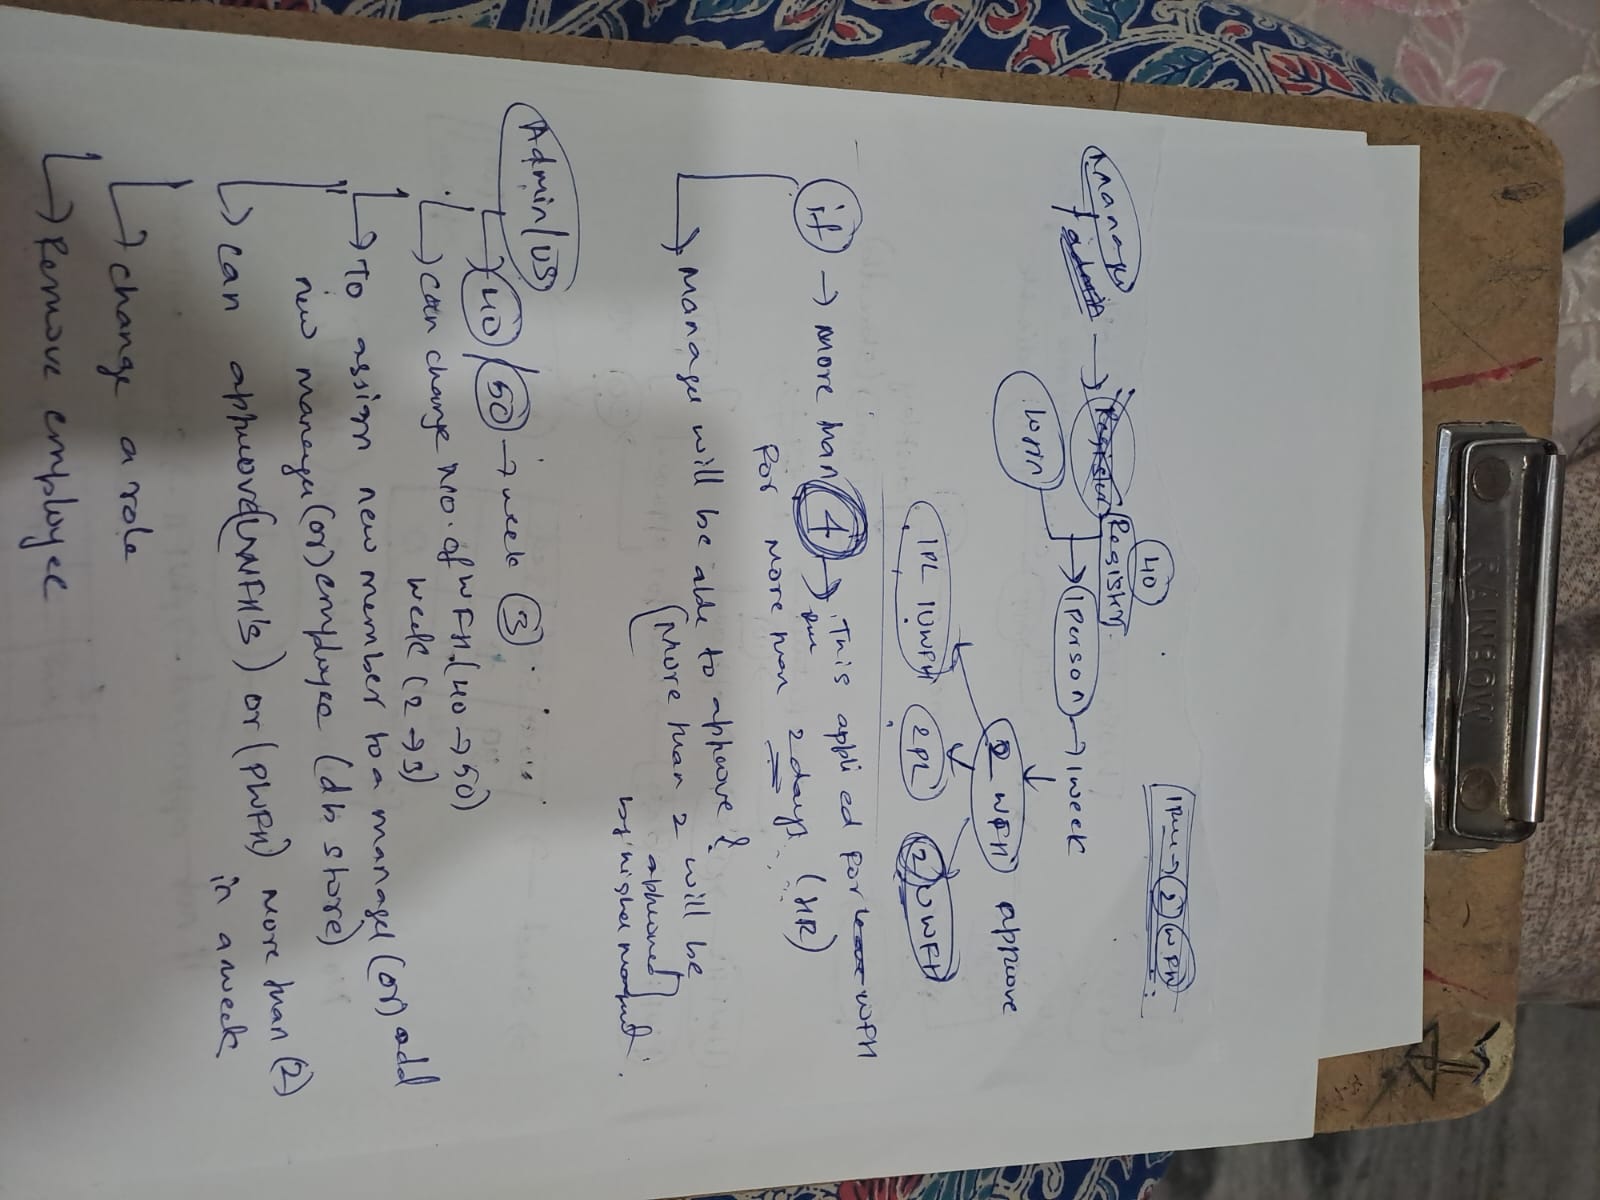 RAINBOW
P
→ 2 WFH
40
Manager → Register Register
/ admin
Login → 1 person → 1 week
2 WFH approve
1PL 1UWFH 2PL 2 UWFH
if → more than 4 → This applied for WFH
for more than 2 days (HR)
→ Manager will be able to approve
(More than 2 will be
approved
by higher
Admin/US
→ 40 / 50 → week 3
→ can change No. of WFH. (40 → 50)
week (2 → 3)
→ To assign new member to a manager (or) add
new manager (or) employee (db store)
→ can approve (UWFH's) or (PWFH) more than 2
in a week
→ change a role
→ Remove employee